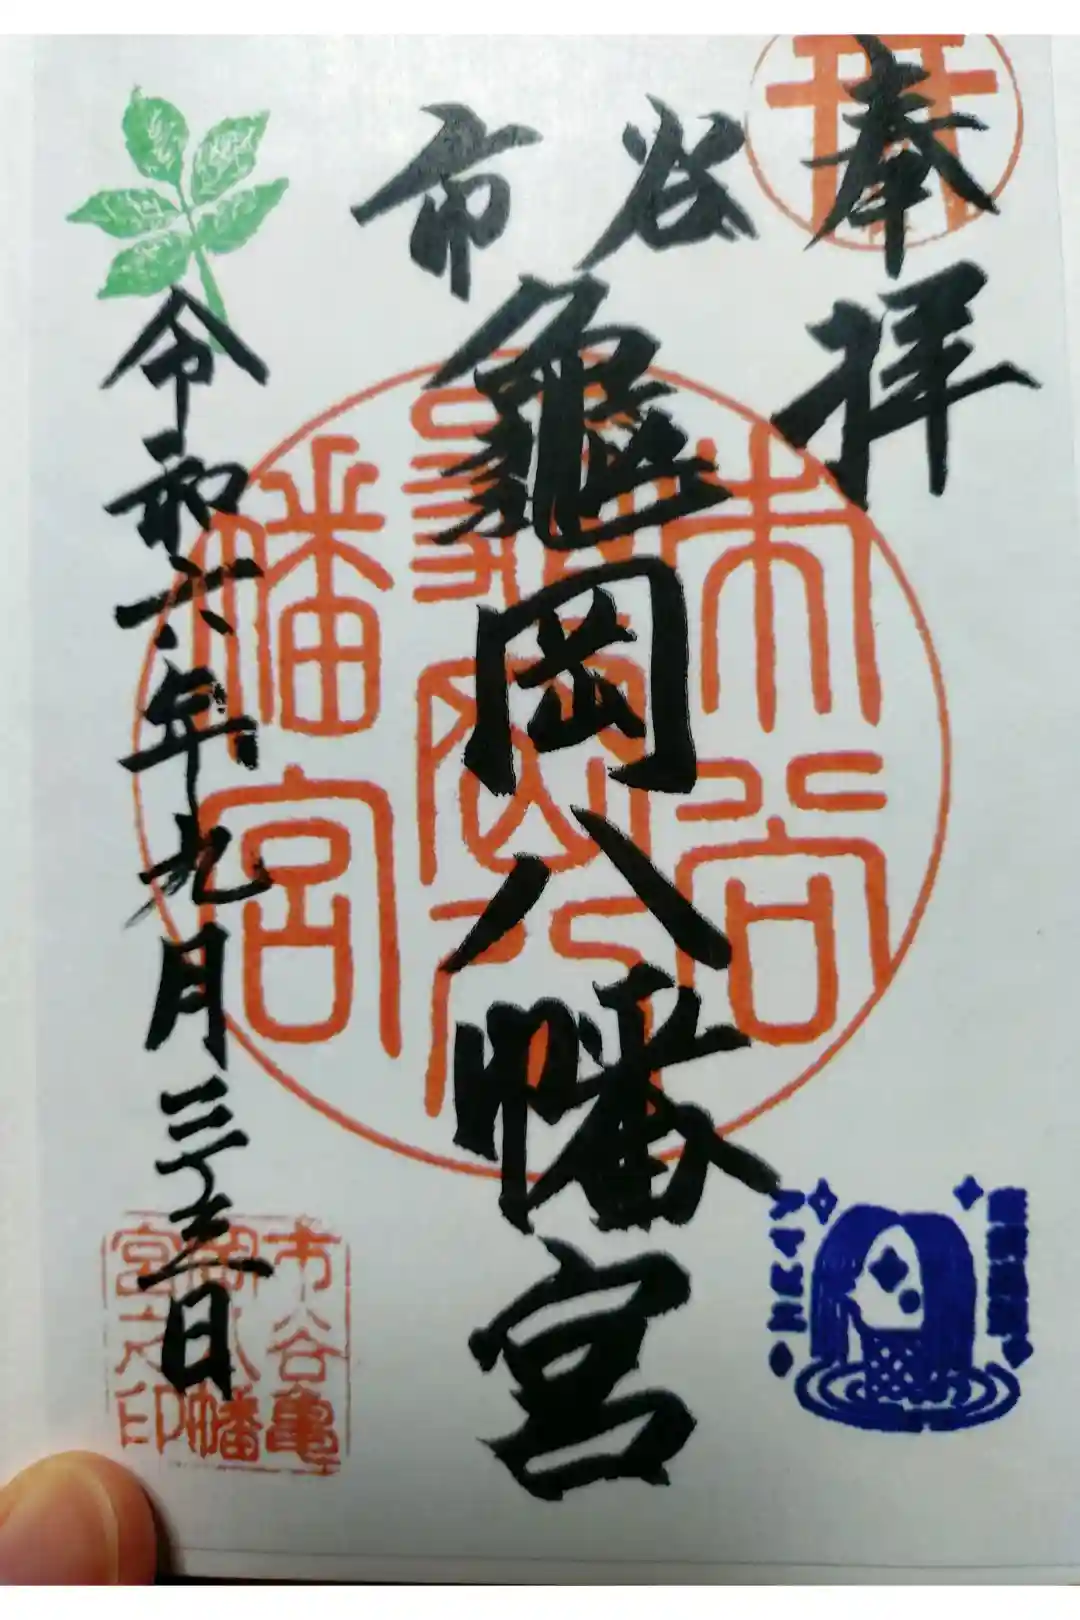 奉拝
市谷
亀岡八幡宮
令和六年九月二十五日
市谷
亀岡八
幡宮
市谷亀
岡八幡
宮之印
アマビエ